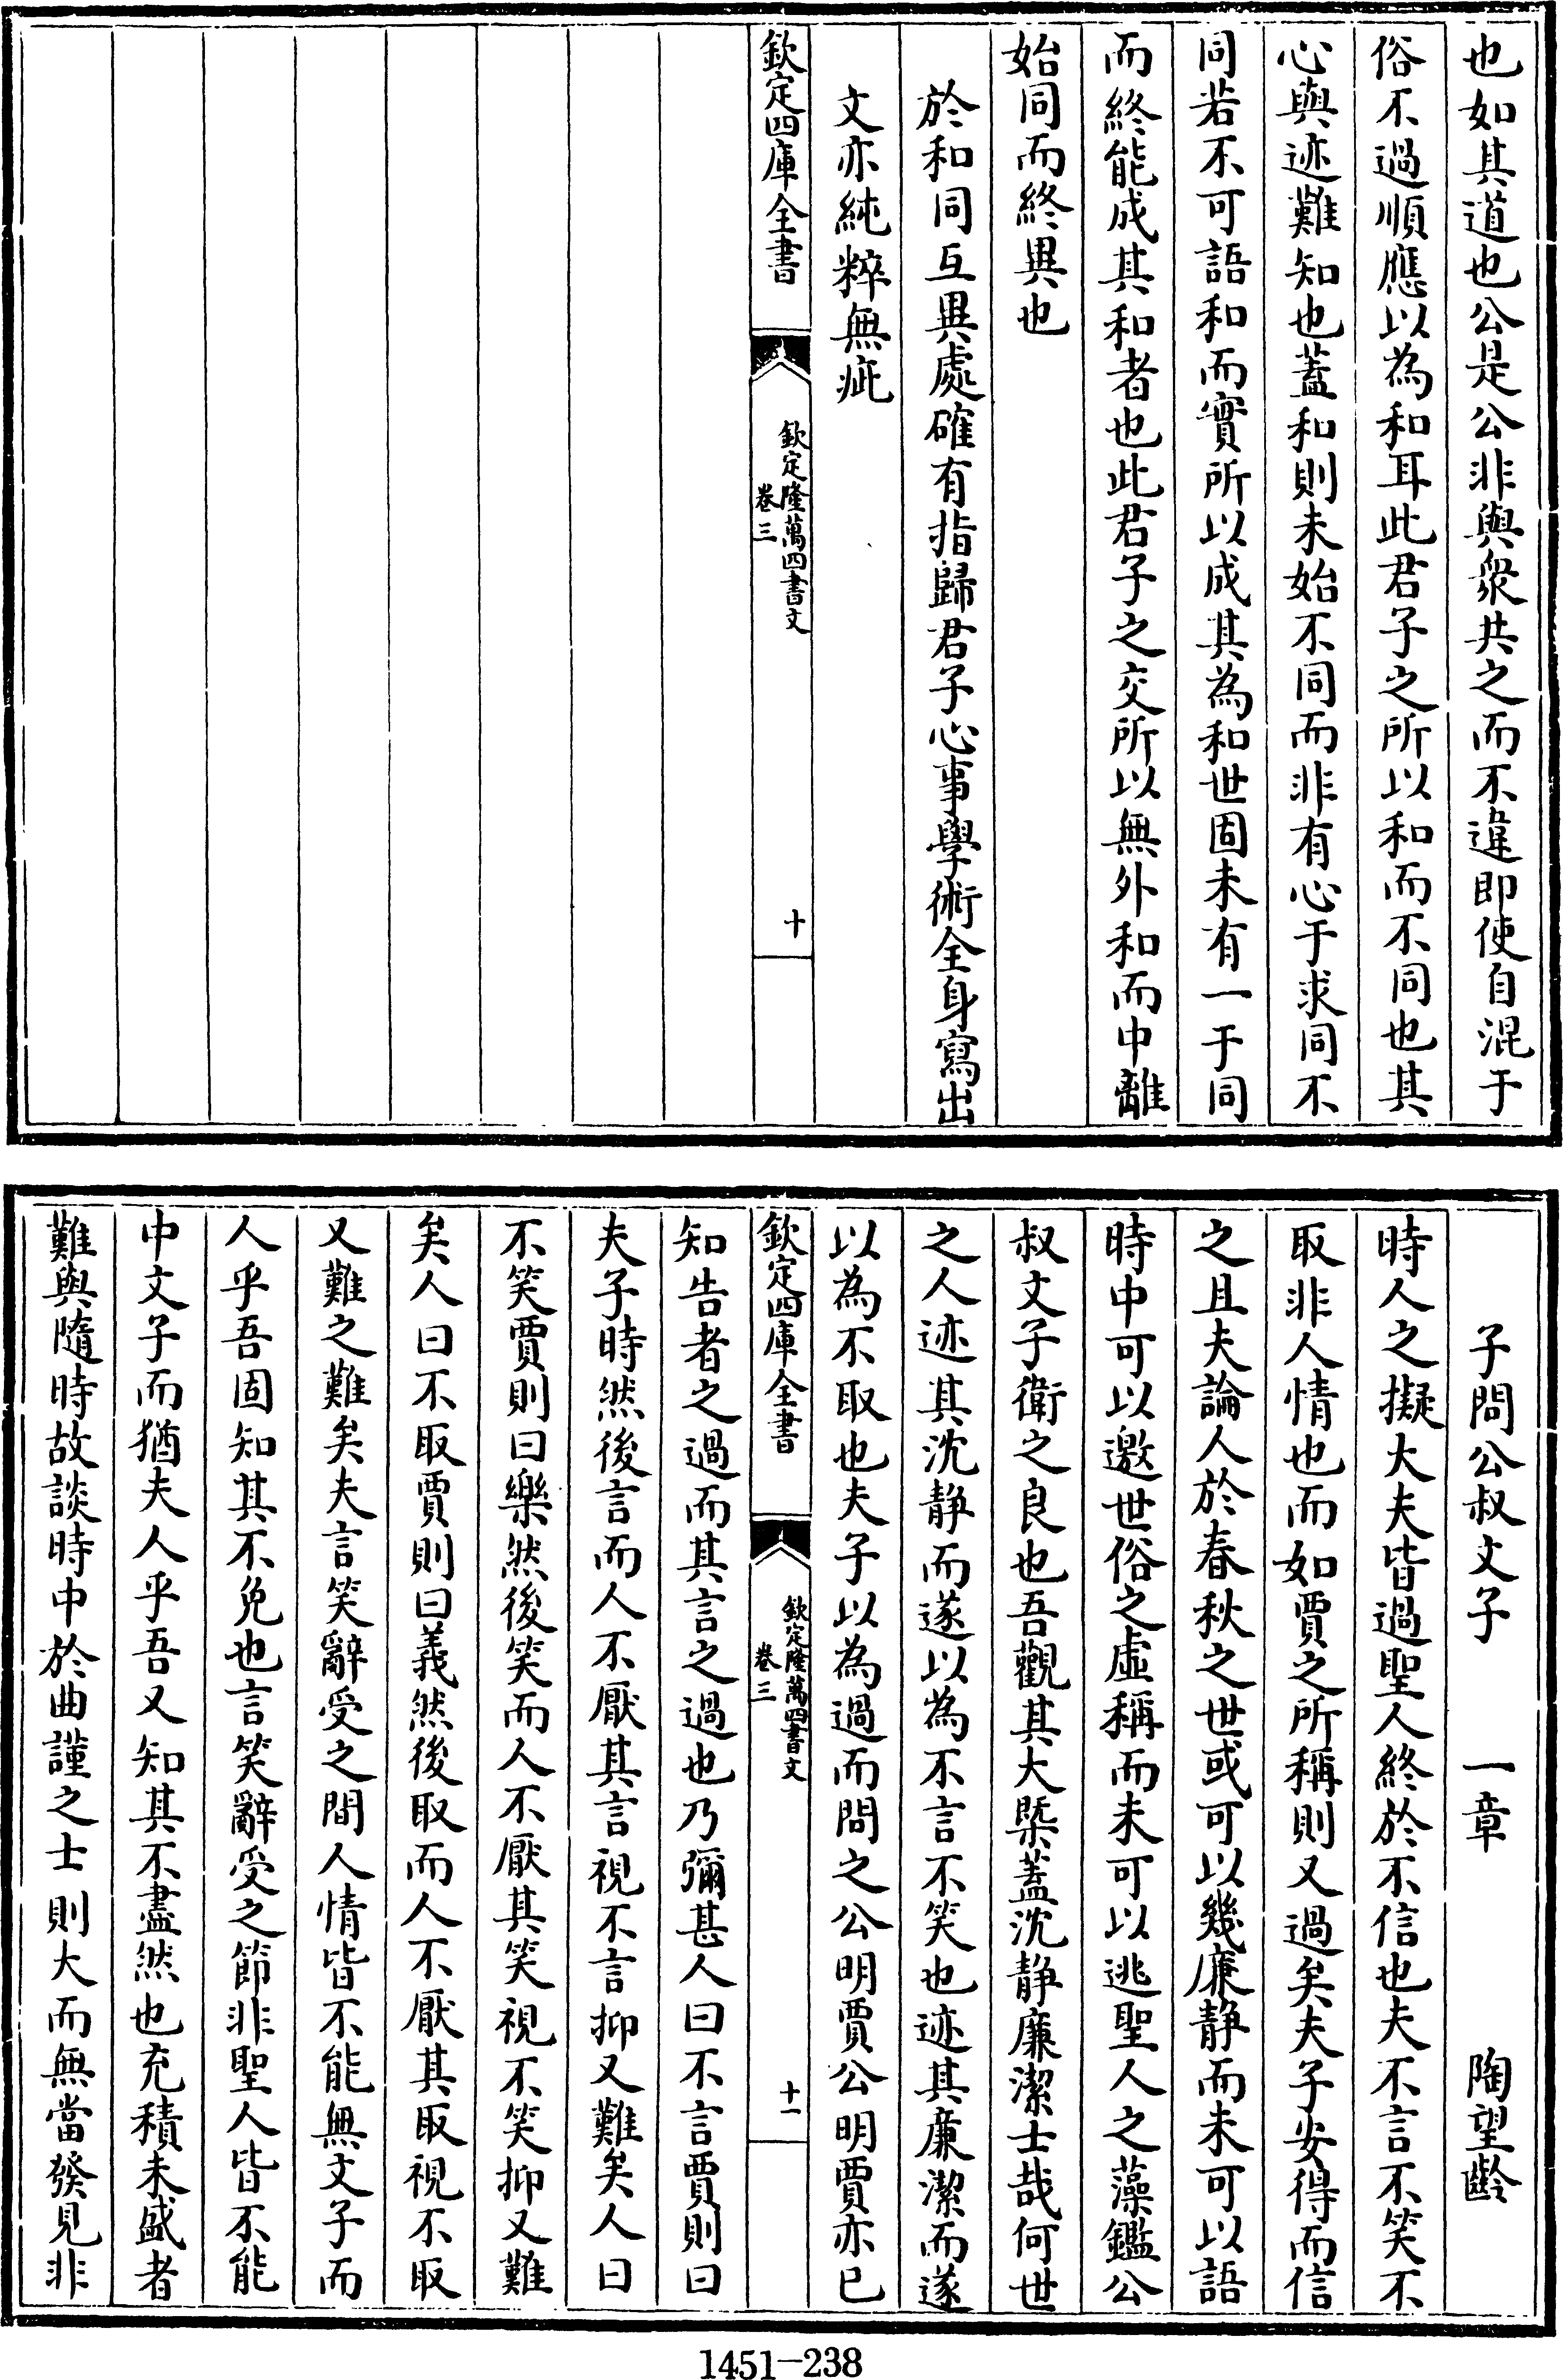 也如其道也公是公非與衆共之而不違即使自混于
俗不過順應以為和耳此君子之所以和而不同也其
心與迹難知也蓋和則未始不同而非有心于求同不
同若不可語和而實所以成其為和世固未有一于同
而終能成其和者也此君子之交所以無外和而中離
始同而終異也
於和同互異處確有指歸君子心事學術全身寫出
文亦純粹無疵
欽定四庫全書
欽定隆萬四書文
卷三
十
子問公叔文子 一章 陶望齡
時人之擬大夫皆過聖人終於不信也夫不言不笑不
取非人情也而如賈之所稱則又過矣夫子安得而信
之且夫論人於春秋之世或可以幾廉静而未可以語
時中可以邀世俗之虛稱而未可以逃聖人之藻鑑公
叔文子衛之良也吾觀其大槩蓋沈静廉潔士哉何世
之人迹其沈静而遂以為不言不笑也迹其廉潔而遂
以為不取也夫子以為過而問之公明賈公明賈亦已
欽定四庫全書
欽定隆萬四書文
卷三
十一
知告者之過而其言之過也乃彌甚人曰不言賈則曰
夫子時然後言而人不厭其言視不言抑又難矣人曰
不笑賈則曰樂然後笑而人不厭其笑視不笑抑又難
矣人曰不取賈則曰義然後取而人不厭其取視不取
又難之難矣夫言笑辭受之間人情皆不能無文子而
人乎吾固知其不免也言笑辭受之節非聖人皆不能
中文子而猶夫人乎吾又知其不盡然也充積未盛者
難與隨時故談時中於曲謹之士則大而無當發見非
1451-238